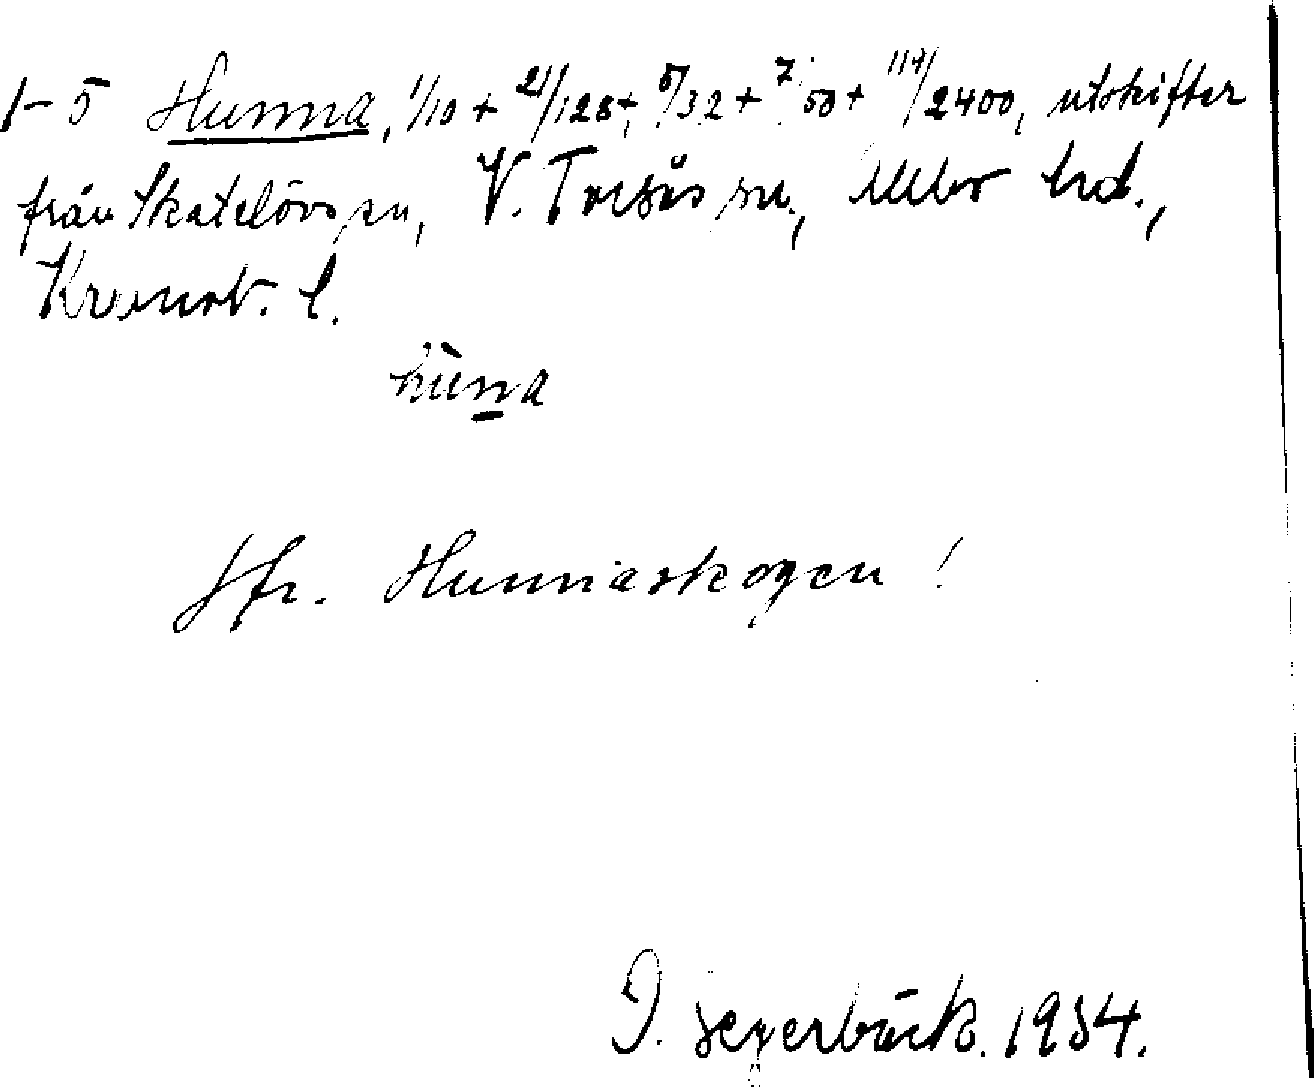 1-5 Hunna, 1/10 + 21/128 + 5/32 + 7/50 + 117/2400, utskifter
från Skatelövs sn, V. Torsås sn., Allbo hd.,
Kronob. l.
hùna
Jfr. Hunnaskogen!
D. Segerbäck. 1934.